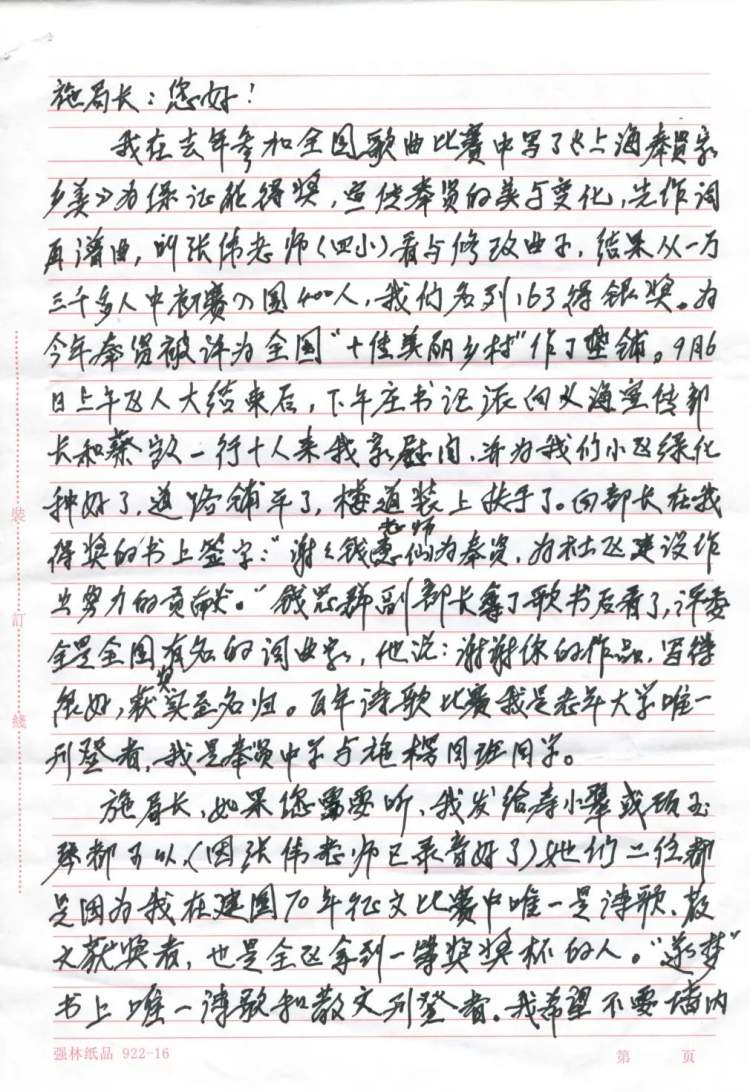 施局长：您好！
我在去年参加全国歌曲比赛中写了《上海奉贤家
乡美》为保证能得奖，宣传奉贤的美与变化，先作词
再谱曲，叫张伟老师（四小）看与修改曲子，结果从一万
三千多人中初赛入围400人，我们名列163得银奖。为
今年奉贤被评为全国“十佳美丽乡村”作了垫铺。9月6
日上午区人大结束后，下午庄书记派向义海宣传部
长和蔡 一行十人来我家慰问，并为我们小区绿化
种好了，道路铺平了，楼道装上扶手了。向部长在我
老师
得奖的书上签字：“谢谢钱惠仙为奉贤，为社区建设作
出努力的贡献。”钱忠群副部长拿了歌书后看了，评委
全是全国有名的词曲家，他说：谢谢你的作品，写得
奖
很好，获实至名归。百年诗歌比赛我是老年大学唯一
刊登者，我是奉贤中学与施 同班同学。
施局长，如果您需要听，我发给 小翠或 玉
都可以（因张伟老师已录音好了）她们二位都
是因为我在建国70年征文比赛中唯一是诗歌、散
文获奖者，也是全区拿到一等奖奖杯的人。“逐梦”
书上唯一诗歌和散文刊登者。我希望不要墙内
裝
訂
綫
强林纸品 922-16
第 页